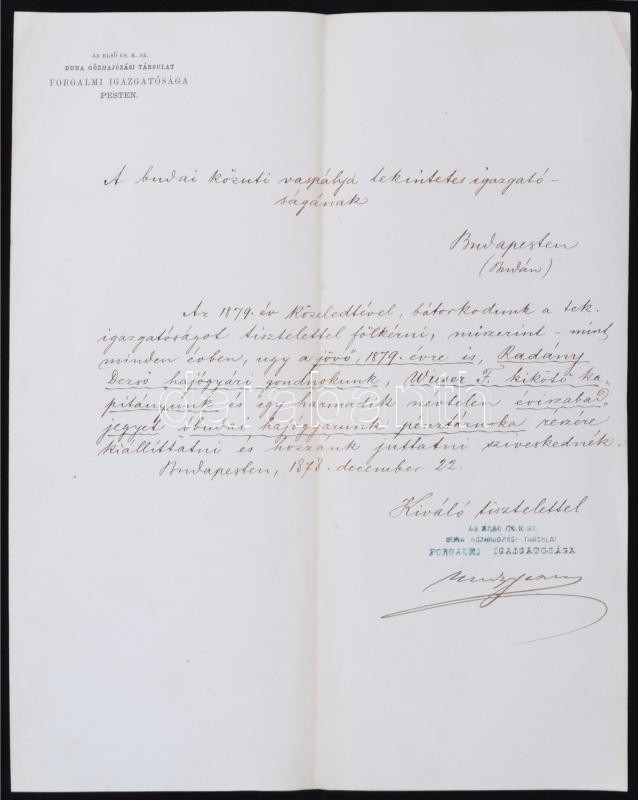 AZ ELSŐ CS. K. SZ.
DUNA GŐZHAJÓZÁSI TÁRSULAT
FORGALMI IGAZGATÓSÁGA
PESTEN.
A budai közuti vaspálya tekintetes igazgató-
ságának
Budapesten
(Budán)
Az 1879. év közeledtével, bátorkodunk a tek.
igazgatóságot tisztelettel fölkérni, miszerint - mint
minden évben, ugy a jövő, 1879. évre is, Radány
Dezső hajógyári gondnokunk, F. kikötő ka-
pitányunk és egy harmadik névtelen évi szabad
jegyet óbudai hajógyárunk pénztárnoka részére
kiállittatni és hozzánk juttatni sziveskednék.
Budapesten, 1878. december 22.
Kiváló tisztelettel
AZ ELSŐ CS. K. SZ.
DUNA GŐZHAJÓZÁSI-TÁRSULAT
FORGALMI IGAZGATÓSÁGA
darabanth